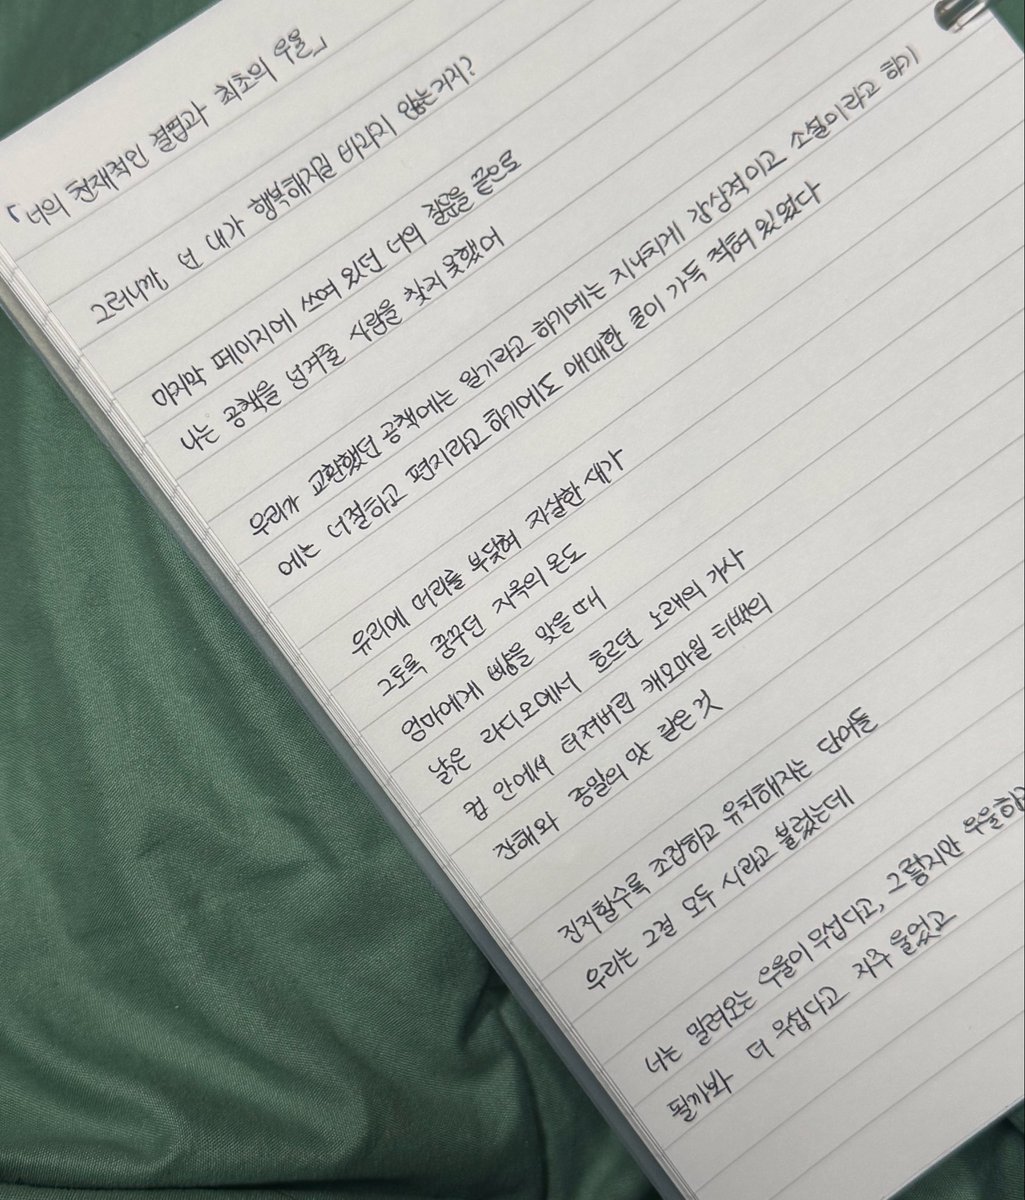 「너의 천재적인 결핍과 최초의 우울」
그러니까, 넌 내가 행복해지길 바라지 않는 거지?
마지막 페이지에 쓰여 있던 너의 질문을 끝으로
나는 공책을 넘겨줄 사람을 찾지 못했어
우리가 교환했던 공책에는 일기라고 하기에는 지나치게 감상적이고 소설이라고 하기
에는 너절하고 편지라고 하기에도 애매한 글이 가득 적혀 있었다
유리에 머리를 부딪혀 자살한 새가
그토록 꿈꾸던 지옥의 온도
엄마에게 뺨을 맞을 때
낡은 라디오에서 흐르던 노래의 가사
컵 안에서 터져버린 캐모마일 티백의
잔해와 종말의 맛 같은 것
진지할수록 조잡하고 유치해지는 단어들
우리는 그걸 모두 시라고 불렀는데
너는 밀려오는 우울이 무섭다고, 그렇지만 우울하
될까봐 더 무섭다고 자주 울었고